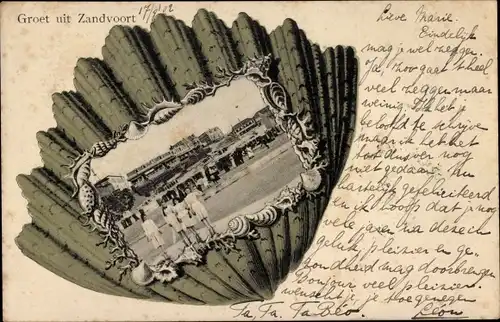 Groet uit Zandvoort
17/8/02
Lieve Marie.
Eindelijk
mag je wel zeggen.
Ja, zoo gaat 't heel
veel zeggen maar
weinig. Ik heb je
beloofd te schrijven
maar ik heb het
tot dusver nog
niet gedaan.
hartelijk gefeliciteerd
en ik hoop dat je nog
vele jaren na deze in
geluk plezier en ge-
zondheid mag doorbrengen
Bonjour veel plezier
wenscht je, je toegenegen
Ta, Ta. Ta Béo. Léon